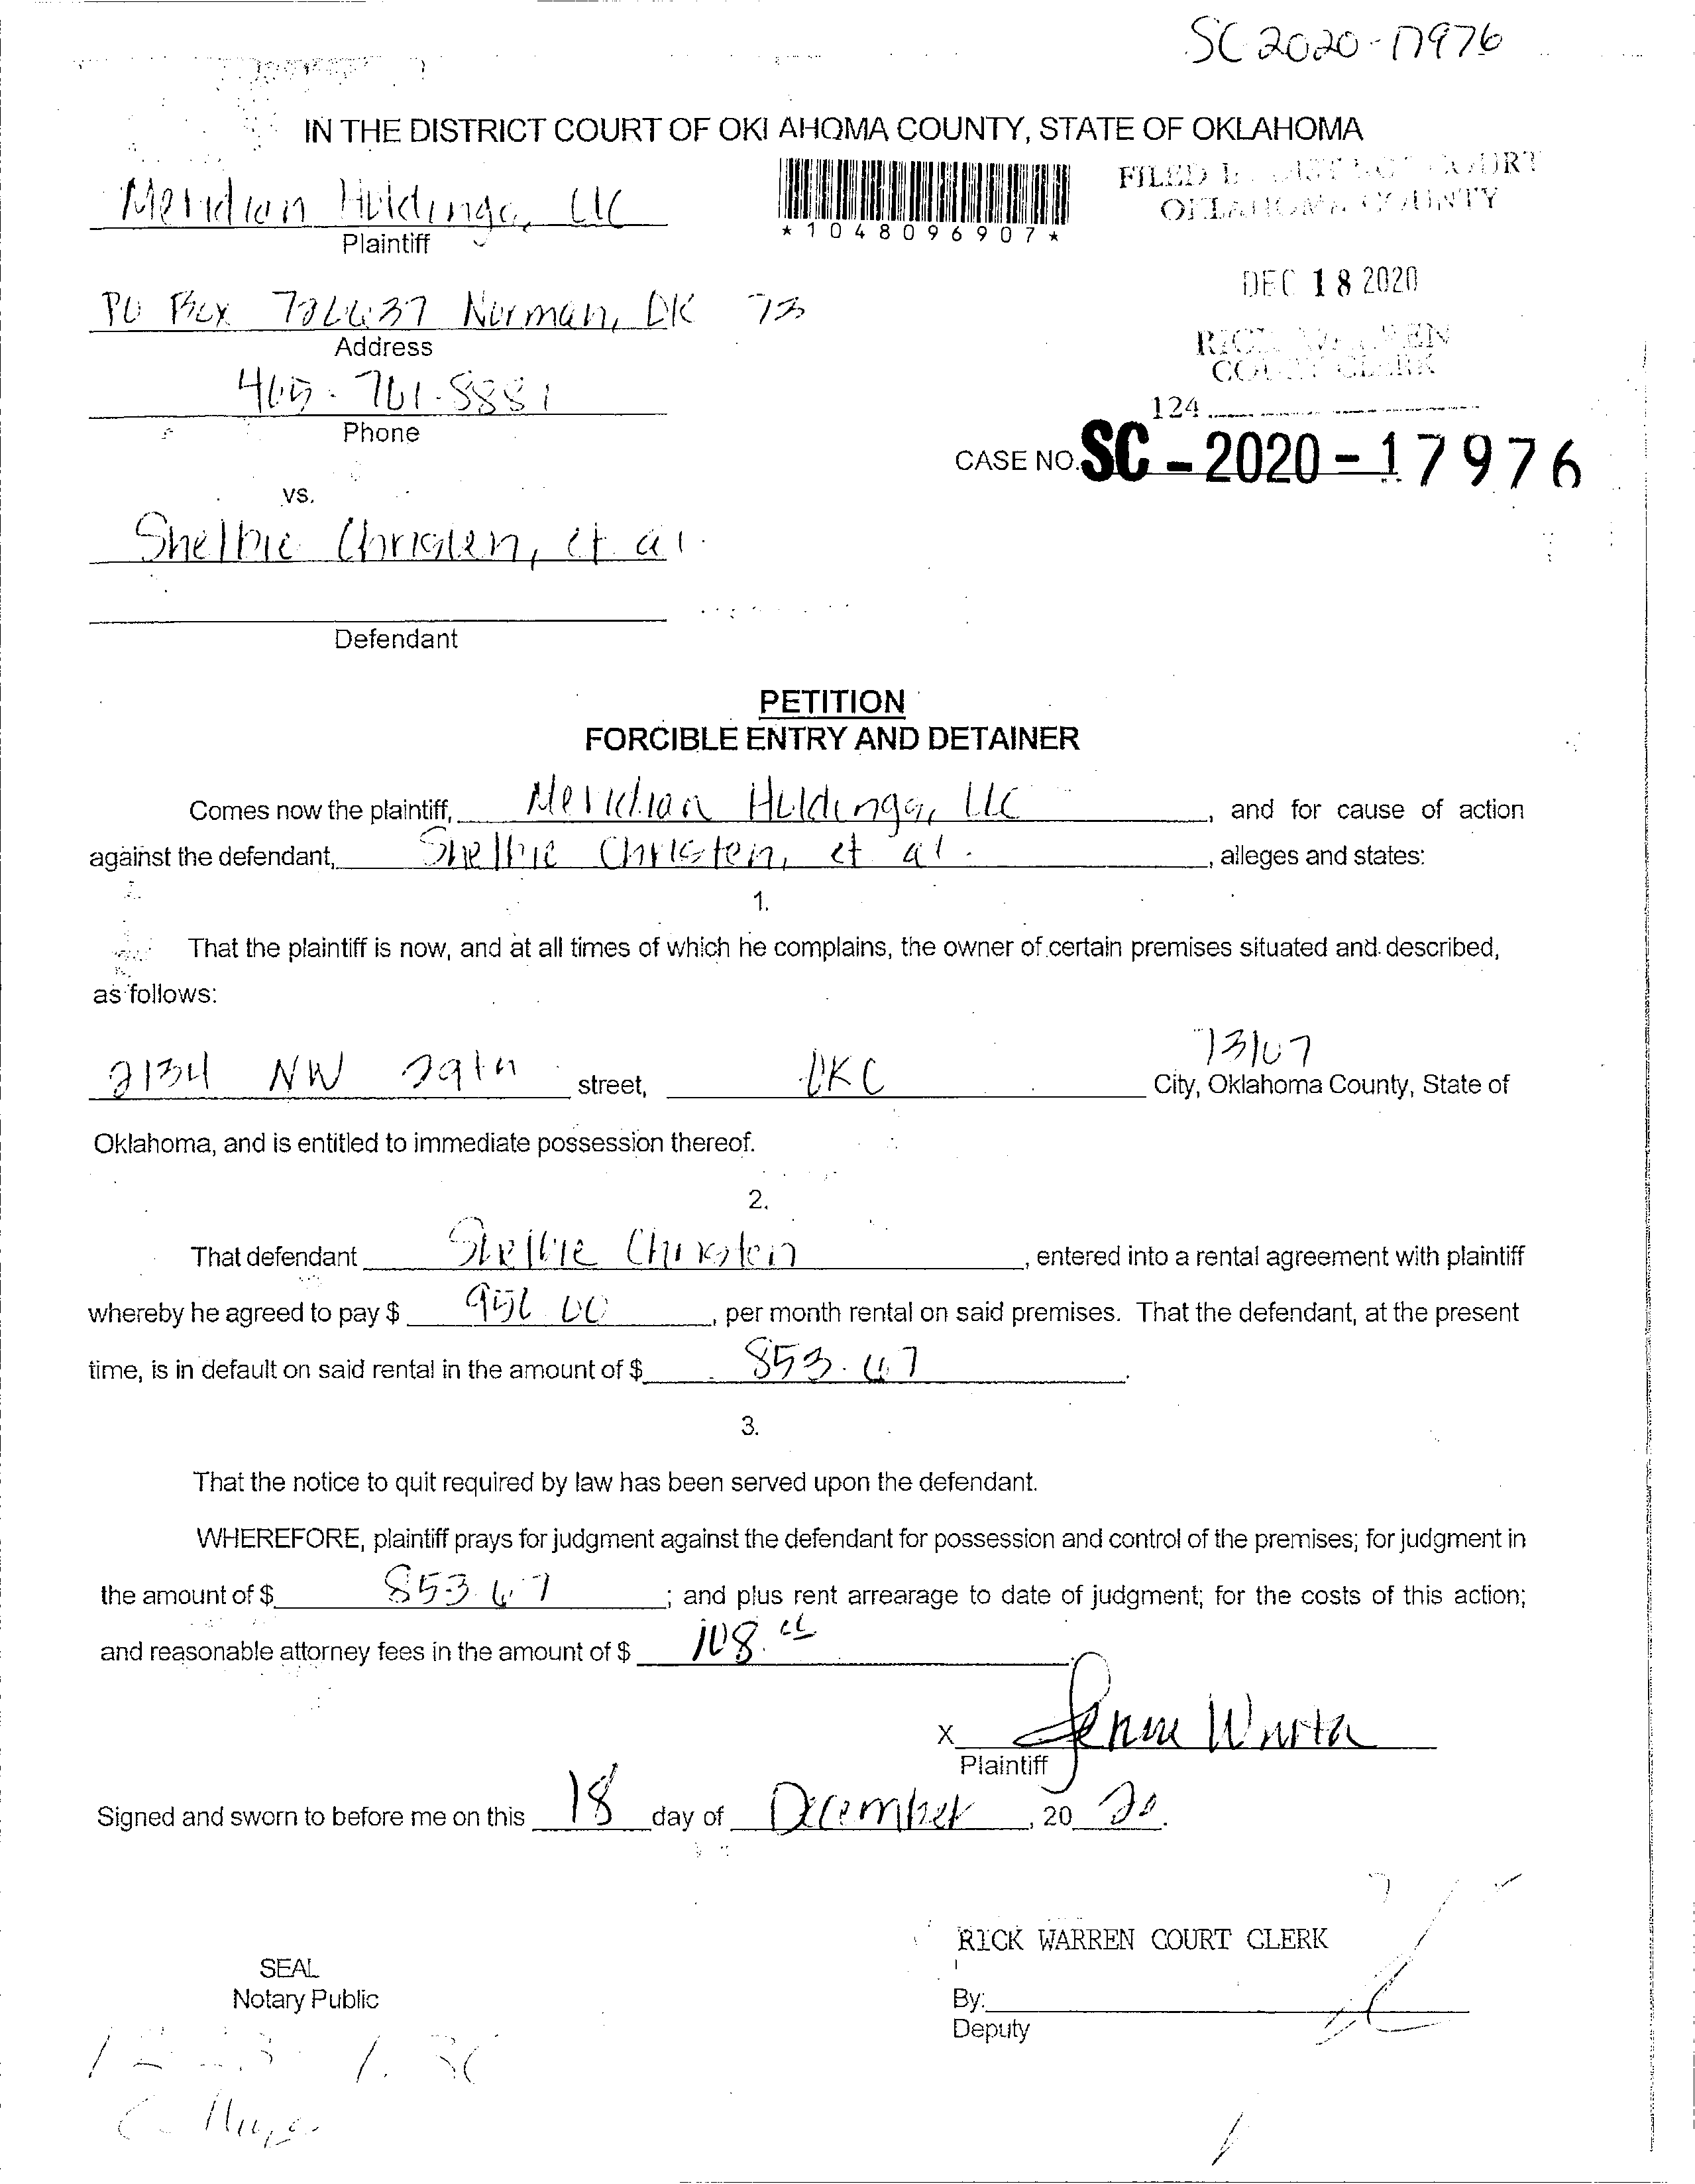 SC 2020-17976
IN THE DISTRICT COURT OF OKLAHOMA COUNTY, STATE OF OKLAHOMA
Meridian Holdings, LLC
Plaintiff
*1048096907*
FILED IN DISTRICT COURT
OKLAHOMA COUNTY
PO Box Norman, OK 73
Address
DEC 18 2020
RICK WARREN
COURT CLERK
405-761-8881
Phone
124
CASE NO. SC-2020-17976
vs.
Shelbie Christen, et al.
Defendant
PETITION
FORCIBLE ENTRY AND DETAINER
Comes now the plaintiff, Meridian Holdings, LLC, and for cause of action
against the defendant, Shelbie Christen, et al., alleges and states:
1.
That the plaintiff is now, and at all times of which he complains, the owner of certain premises situated and described,
as follows:
73107
2134 NW 29th street, OKC City, Oklahoma County, State of
Oklahoma, and is entitled to immediate possession thereof.
2.
That defendant Shelbie Christen, entered into a rental agreement with plaintiff
whereby he agreed to pay $, per month rental on said premises. That the defendant, at the present
time, is in default on said rental in the amount of $ 853.67.
3.
That the notice to quit required by law has been served upon the defendant.
WHEREFORE, plaintiff prays for judgment against the defendant for possession and control of the premises; for judgment in
the amount of $ 853.67; and plus rent arrearage to date of judgment; for the costs of this action;
and reasonable attorney fees in the amount of $ 108.
X
Plaintiff
Signed and sworn to before me on this 18 day of December, 20 20.
RICK WARREN COURT CLERK
SEAL
Notary Public
By:
Deputy